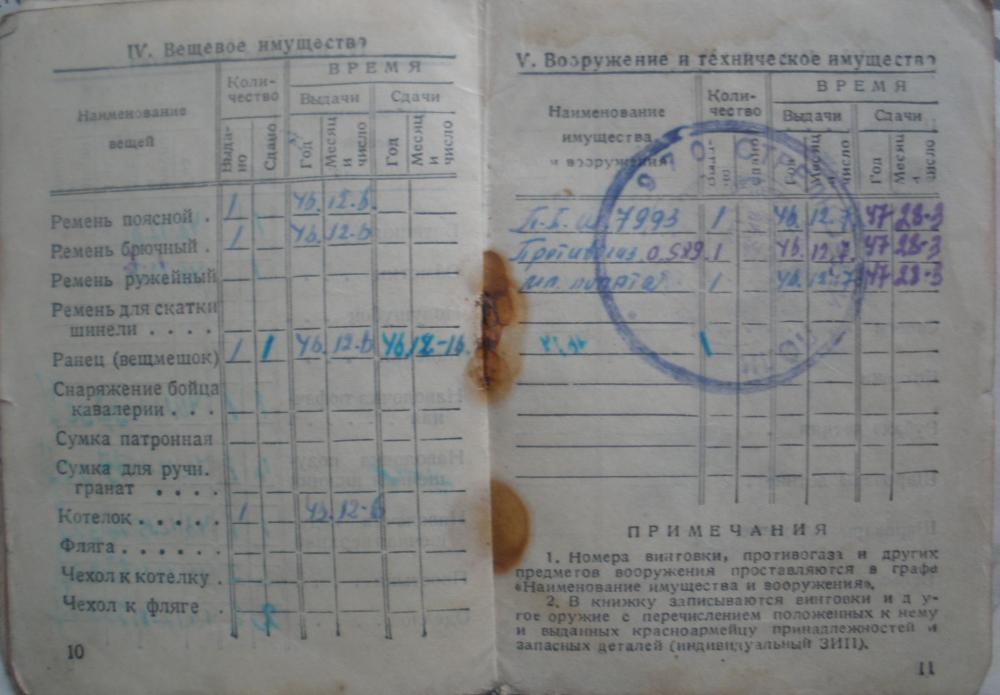 IV. Вещевое имущество
Наименование вещей
Количество
ВРЕМЯ
Выдачи
Сдачи
Выдано
Сдано
Год
Месяц и число
Год
Месяц и число
Ремень поясной . 1 46. 12-6.
Ремень брючный . 1 46. 12-6
Ремень ружейный
Ремень для скатки
шинели . . . .
Ранец (вещмешок) 1 1 46. 12-6 46. 12-16.
Снаряжение бойца
кавалерии . . .
Сумка патронная
Сумка для ручн.
гранат . . . .
Котелок . . . . . 1 12-6
Фляга . . . . . .
Чехол к котелку .
Чехол к фляге .
10
V. Вооружение и техническое имущество
Наименование
имущества
и вооружения
Количество
ВРЕМЯ
Выдачи
Сдачи
Год
Месяц и число
Год
Месяц и число
7993 1 46. 12.7 47 28-3
Противогаз 0.589. 1 46. 12.7 47 28-3
мл. лопата 1 46 12-7 47 28-3
1
ПРИМЕЧАНИЯ
1. Номера винтовки, противогаза и других
предметов вооружения проставляются в графе
«Наименование имущества и вооружения».
2. В книжку записываются винтовки и д у-
гое оружие с перечислением положенных к нему
и выданных красноармейцу принадлежностей и
запасных деталей (индивидуальный ЗИП).
11